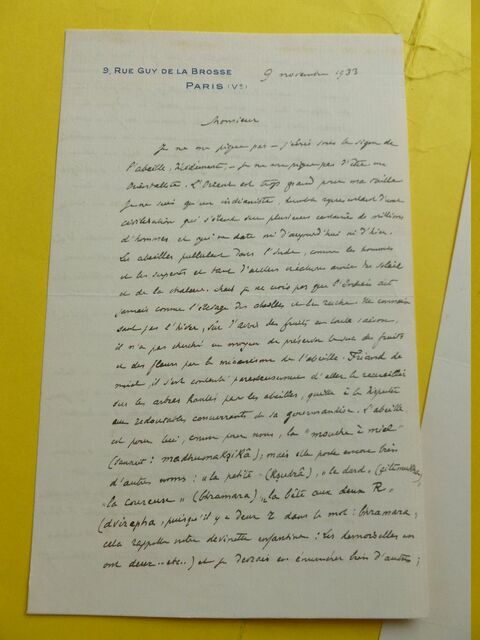 9, RUE GUY DE LA BROSSE
PARIS (Vᵉ)
9 novembre 1933
Monsieur
Je ne me pique pas — j'écris sous le signe de
l'abeille, , — je ne me pique pas d'être un
Orientaliste. L'Orient est trop grand pour ma taille
Je ne suis qu'un indianiste, humble représentant d'une
civilisation qui s'étend sur plusieurs centaines de millions
d'hommes et qui ne date ni d'aujourd'hui ni d'hier.
Les abeilles pullulent dans l'Inde, comme les hommes
et les serpents et tant d'autres créatures amies du soleil
et de la chaleur. Mais je ne crois pas que l'Indien ait
jamais connu l'élevage des abeilles et la ruche. Ne connaissant
pas l'hiver, sûr d'avoir des fruits en toute saison,
il n'a pas cherché un moyen de préserver le suc des fruits
et des fleurs par le mécanisme de l'abeille. Friand de
miel, il s'est contenté paresseusement d'aller le recueillir
sur les arbres hantés par les abeilles, quitte à le disputer
aux redoutables concurrents de sa gourmandise. L'abeille
est pour lui, comme pour nous, la "mouche à miel"
(sanscrit: madhumakṣikâ); mais elle porte encore bien
d'autres noms: "la petite" (kṣudrâ), "le dard",
"la coureuse" (bhramara) "la bête aux deux R"
(dvirepha, puisqu'il y a deux r dans le mot: bhramara,
cela rappelle notre devinette enfantine: Les demoiselles en
ont deux.. etc..) et je pourrais en énumérer bien d'autres;